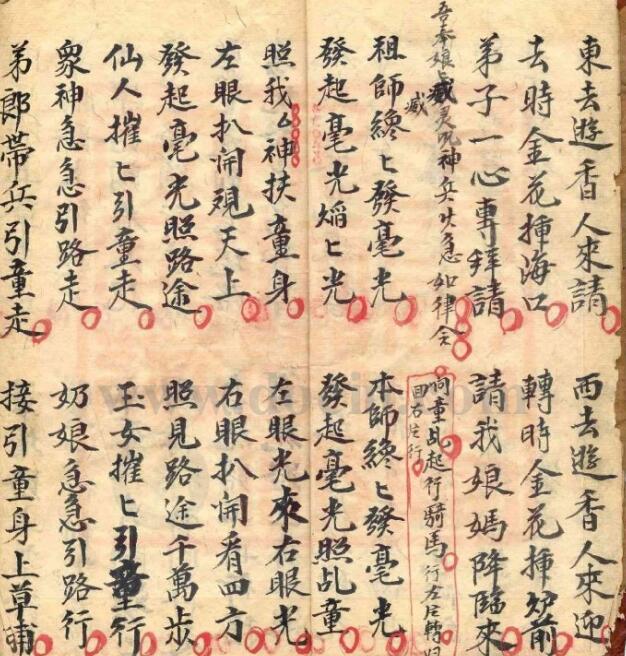 東去遊香人來請
西去遊香人來迎
去時金花插海口
轉時金花插炉前
弟子一心專拜請
請我娘媽降臨來
吾奉娘ヒ灵咒神兵火急如律令
向童乩起行騎馬行左片轉
回右片行
祖師纔ヒ發毫光
本師纔ヒ發毫光
發起毫光焰ヒ光
發起毫光照乩童
照我厶神扶童身
左眼光來右眼光
左眼扒開覌天上
右眼扒開看四方
發起毫光照路途
照見路途千萬步
仙人摧ヒ引童走
玉女摧ヒ引童行
衆神急急引路走
奶娘急急引路行
弟郎帶兵引童走
接引童身上草埔